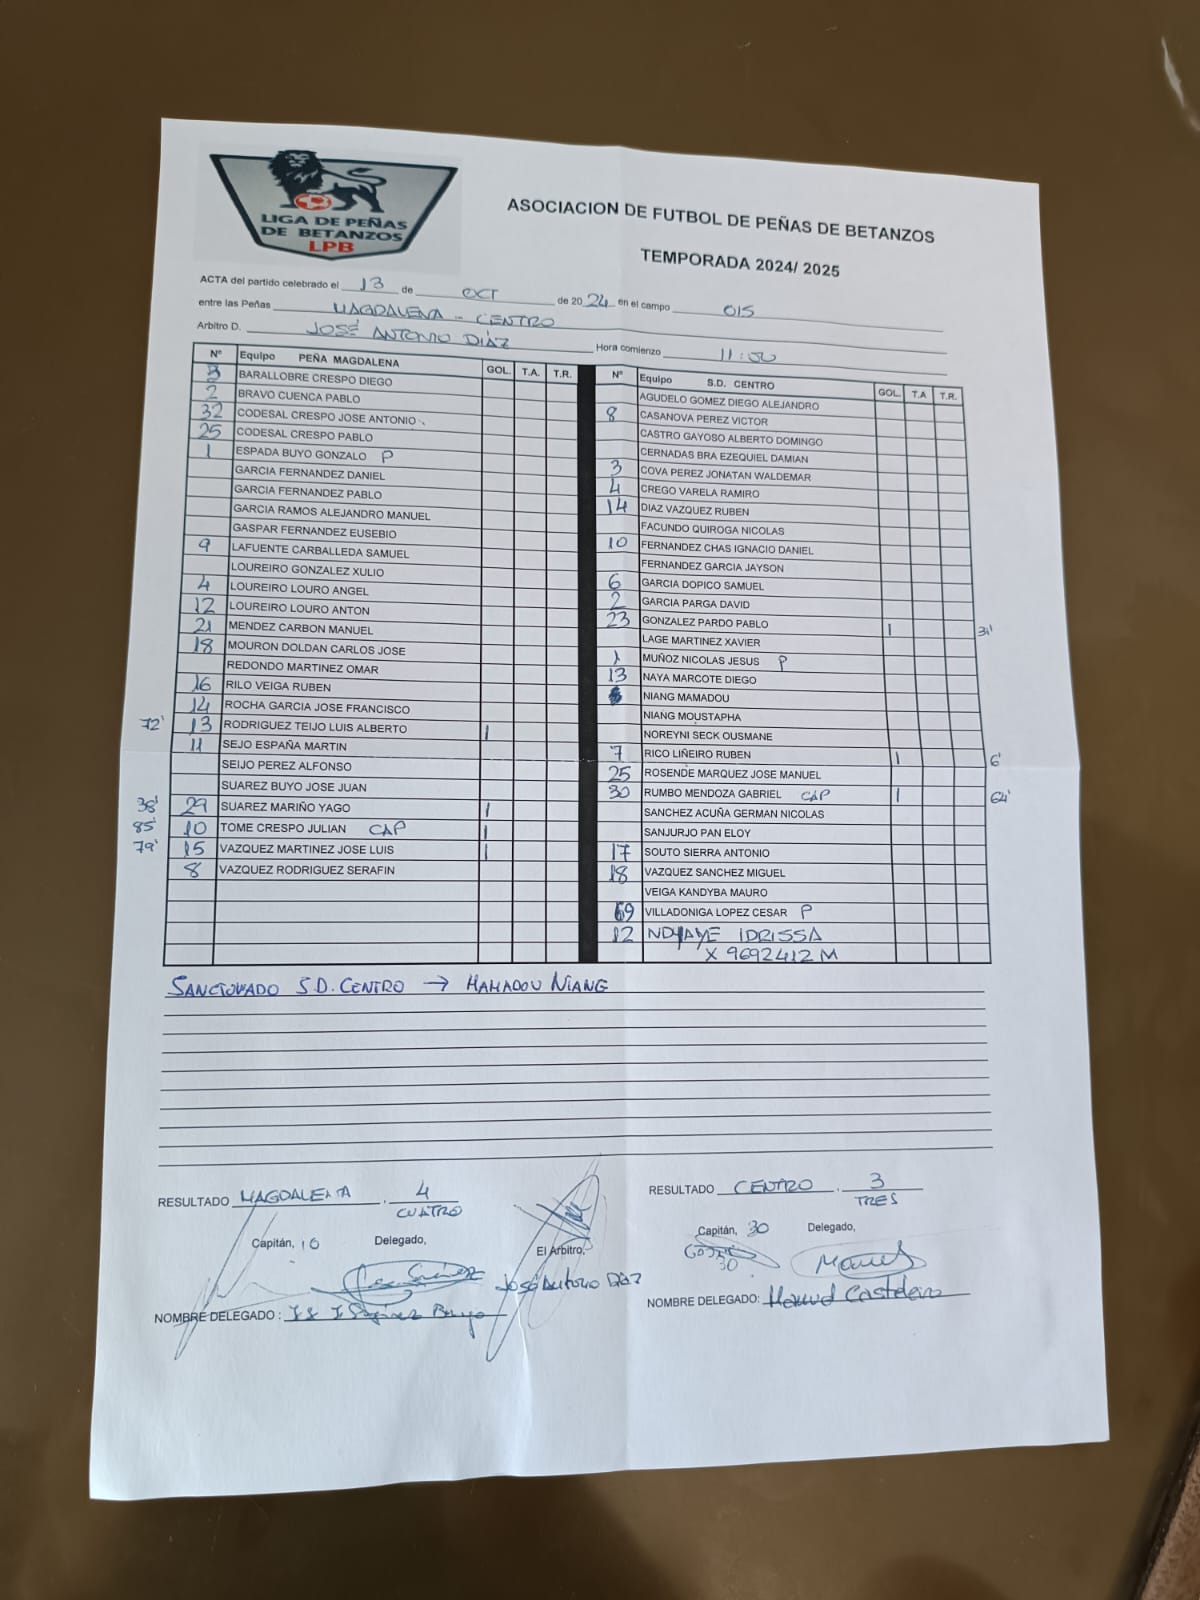 LIGA DE PEÑAS
DE BETANZOS
LPB
ASOCIACION DE FUTBOL DE PEÑAS DE BETANZOS
TEMPORADA 2024/ 2025
ACTA del partido celebrado el 13 de OCT de 2024 en el campo OIS
entre las Peñas MAGDALENA - CENTRO
Arbitro D. JOSÉ ANTONIO DIÁZ Hora comienzo 11:00
Nº Equipo PEÑA MAGDALENA GOL. T.A. T.R.
3 BARALLOBRE CRESPO DIEGO
2 BRAVO CUENCA PABLO
32 CODESAL CRESPO JOSE ANTONIO
25 CODESAL CRESPO PABLO
1 ESPADA BUYO GONZALO P
GARCIA FERNANDEZ DANIEL
GARCIA FERNANDEZ PABLO
GARCIA RAMOS ALEJANDRO MANUEL
GASPAR FERNANDEZ EUSEBIO
9 LAFUENTE CARBALLEDA SAMUEL
LOUREIRO GONZALEZ XULIO
4 LOUREIRO LOURO ANGEL
12 LOUREIRO LOURO ANTON
21 MENDEZ CARBON MANUEL
18 MOURON DOLDAN CARLOS JOSE
REDONDO MARTINEZ OMAR
16 RILO VEIGA RUBEN
14 ROCHA GARCIA JOSE FRANCISCO
72' 13 RODRIGUEZ TEIJO LUIS ALBERTO 1
11 SEJO ESPAÑA MARTIN
SEIJO PEREZ ALFONSO
SUAREZ BUYO JOSE JUAN
38' 29 SUAREZ MARIÑO YAGO 1
85' 10 TOME CRESPO JULIAN CAP 1
79' 15 VAZQUEZ MARTINEZ JOSE LUIS 1
8 VAZQUEZ RODRIGUEZ SERAFIN
Nº Equipo S.D. CENTRO GOL. T.A T.R.
AGUDELO GOMEZ DIEGO ALEJANDRO
8 CASANOVA PEREZ VICTOR
CASTRO GAYOSO ALBERTO DOMINGO
CERNADAS BRA EZEQUIEL DAMIAN
3 COVA PEREZ JONATAN WALDEMAR
4 CREGO VARELA RAMIRO
14 DIAZ VAZQUEZ RUBEN
FACUNDO QUIROGA NICOLAS
10 FERNANDEZ CHAS IGNACIO DANIEL
FERNANDEZ GARCIA JAYSON
6 GARCIA DOPICO SAMUEL
2 GARCIA PARGA DAVID
23 GONZALEZ PARDO PABLO 1 31'
LAGE MARTINEZ XAVIER
1 MUÑOZ NICOLAS JESUS P
13 NAYA MARCOTE DIEGO
NIANG MAMADOU
NIANG MOUSTAPHA
NOREYNI SECK OUSMANE
7 RICO LIÑEIRO RUBEN 1 6'
25 ROSENDE MARQUEZ JOSE MANUEL
30 RUMBO MENDOZA GABRIEL CAP 1 64'
SANCHEZ ACUÑA GERMAN NICOLAS
SANJURJO PAN ELOY
17 SOUTO SIERRA ANTONIO
18 VAZQUEZ SANCHEZ MIGUEL
VEIGA KANDYBA MAURO
69 VILLADONIGA LOPEZ CESAR P
12 NDYAYE IDRISSA
X 9692412 M
SANCIONADO S.D. CENTRO → MAMADOU NIANG
RESULTADO MAGDALENA . 4
CUATRO
RESULTADO CENTRO . 3
TRES
Capitán, 10 Delegado, El Arbitro,
José Antonio Díaz
Capitán, 30 Delegado,
30 Manuel
NOMBRE DELEGADO :
NOMBRE DELEGADO: Manuel Casteleiro